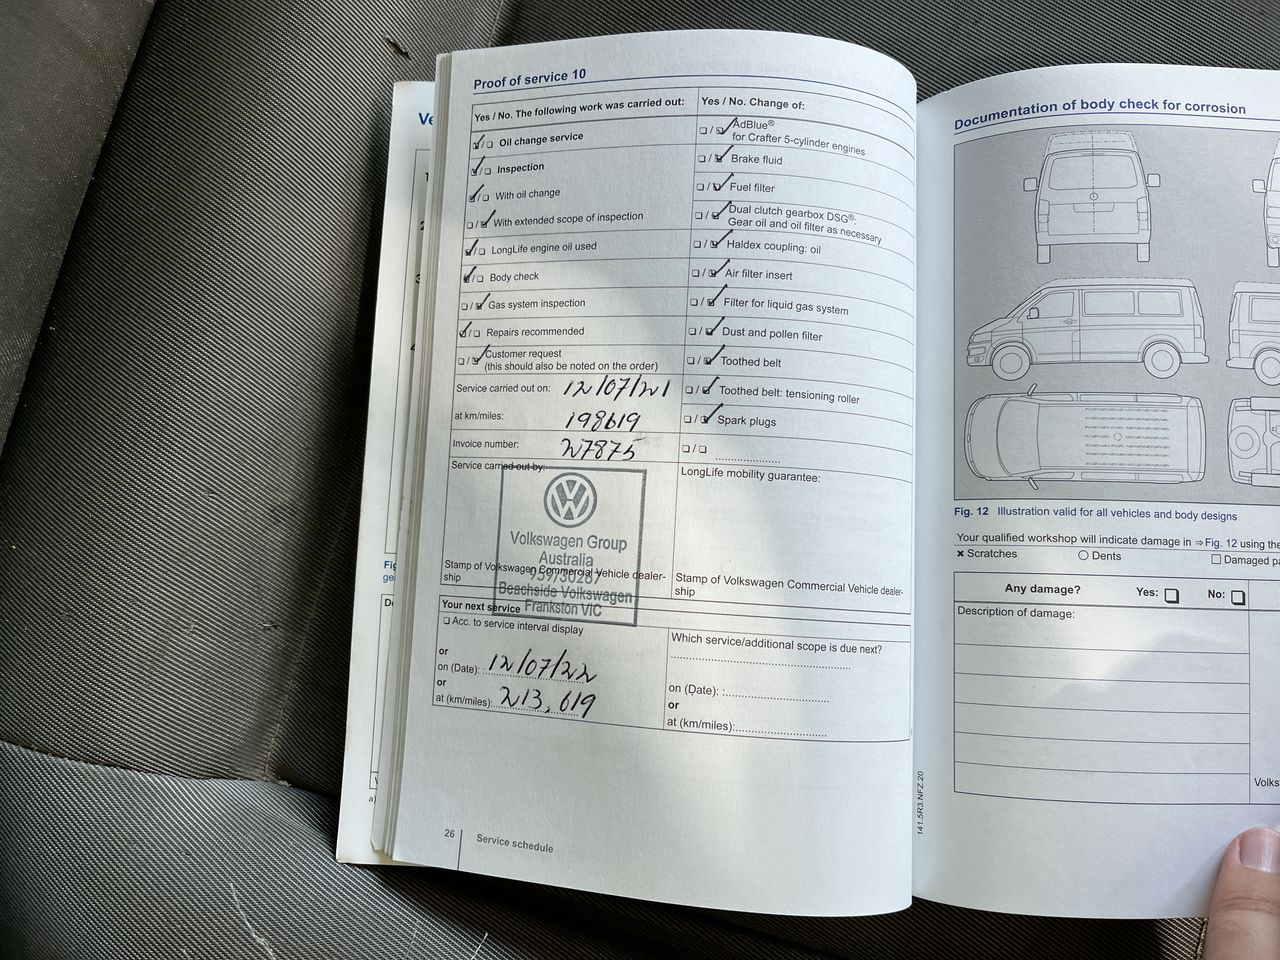 Proof of service 10
Yes / No. The following work was carried out:
☑/☐ Oil change service
☑/☐ Inspection
☑/☐ With oil change
☐/☑ With extended scope of inspection
☑/☐ LongLife engine oil used
☑/☐ Body check
☐/☑ Gas system inspection
☑/☐ Repairs recommended
☐/☑ Customer request
(this should also be noted on the order)
Service carried out on: 12/07/21
at km/miles: 198619
Invoice number: 27875
Service carried out by:
Volkswagen Group
Australia
Stamp of Volkswagen Commercial Vehicle dealer-
ship
Beachside Volkswagen
Frankston VIC
Yes / No. Change of:
☐/☑ AdBlue®
for Crafter 5-cylinder engines
☐/☑ Brake fluid
☐/☑ Fuel filter
☐/☑ Dual clutch gearbox DSG®:
Gear oil and oil filter as necessary
☐/☑ Haldex coupling: oil
☐/☑ Air filter insert
☐/☑ Filter for liquid gas system
☐/☑ Dust and pollen filter
☐/☑ Toothed belt
☐/☑ Toothed belt: tensioning roller
☐/☑ Spark plugs
☐/☐ ....................
LongLife mobility guarantee:
Stamp of Volkswagen Commercial Vehicle dealer-
ship
Your next service
☐ Acc. to service interval display
or
on (Date): 12/07/22
or
at (km/miles): 213,619
Which service/additional scope is due next?
on (Date): :
or
at (km/miles):
26
Service schedule
Documentation of body check for corrosion
Fig. 12 Illustration valid for all vehicles and body designs
Your qualified workshop will indicate damage in ⇒ Fig. 12 using the
× Scratches ○ Dents ☐ Damaged
Any damage? Yes: ☐ No: ☐
Description of damage:
141.5R3.NFZ.20